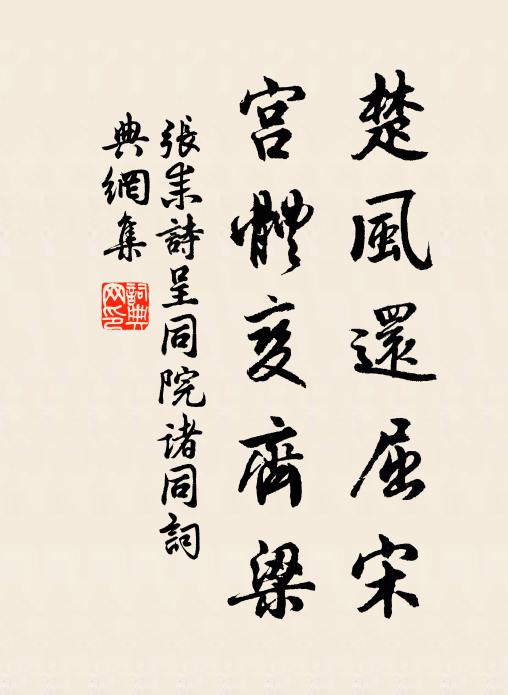 楚風還屈宋
宮體變齊梁
張耒詩呈同院诸同詞
典網集
詞典
网印